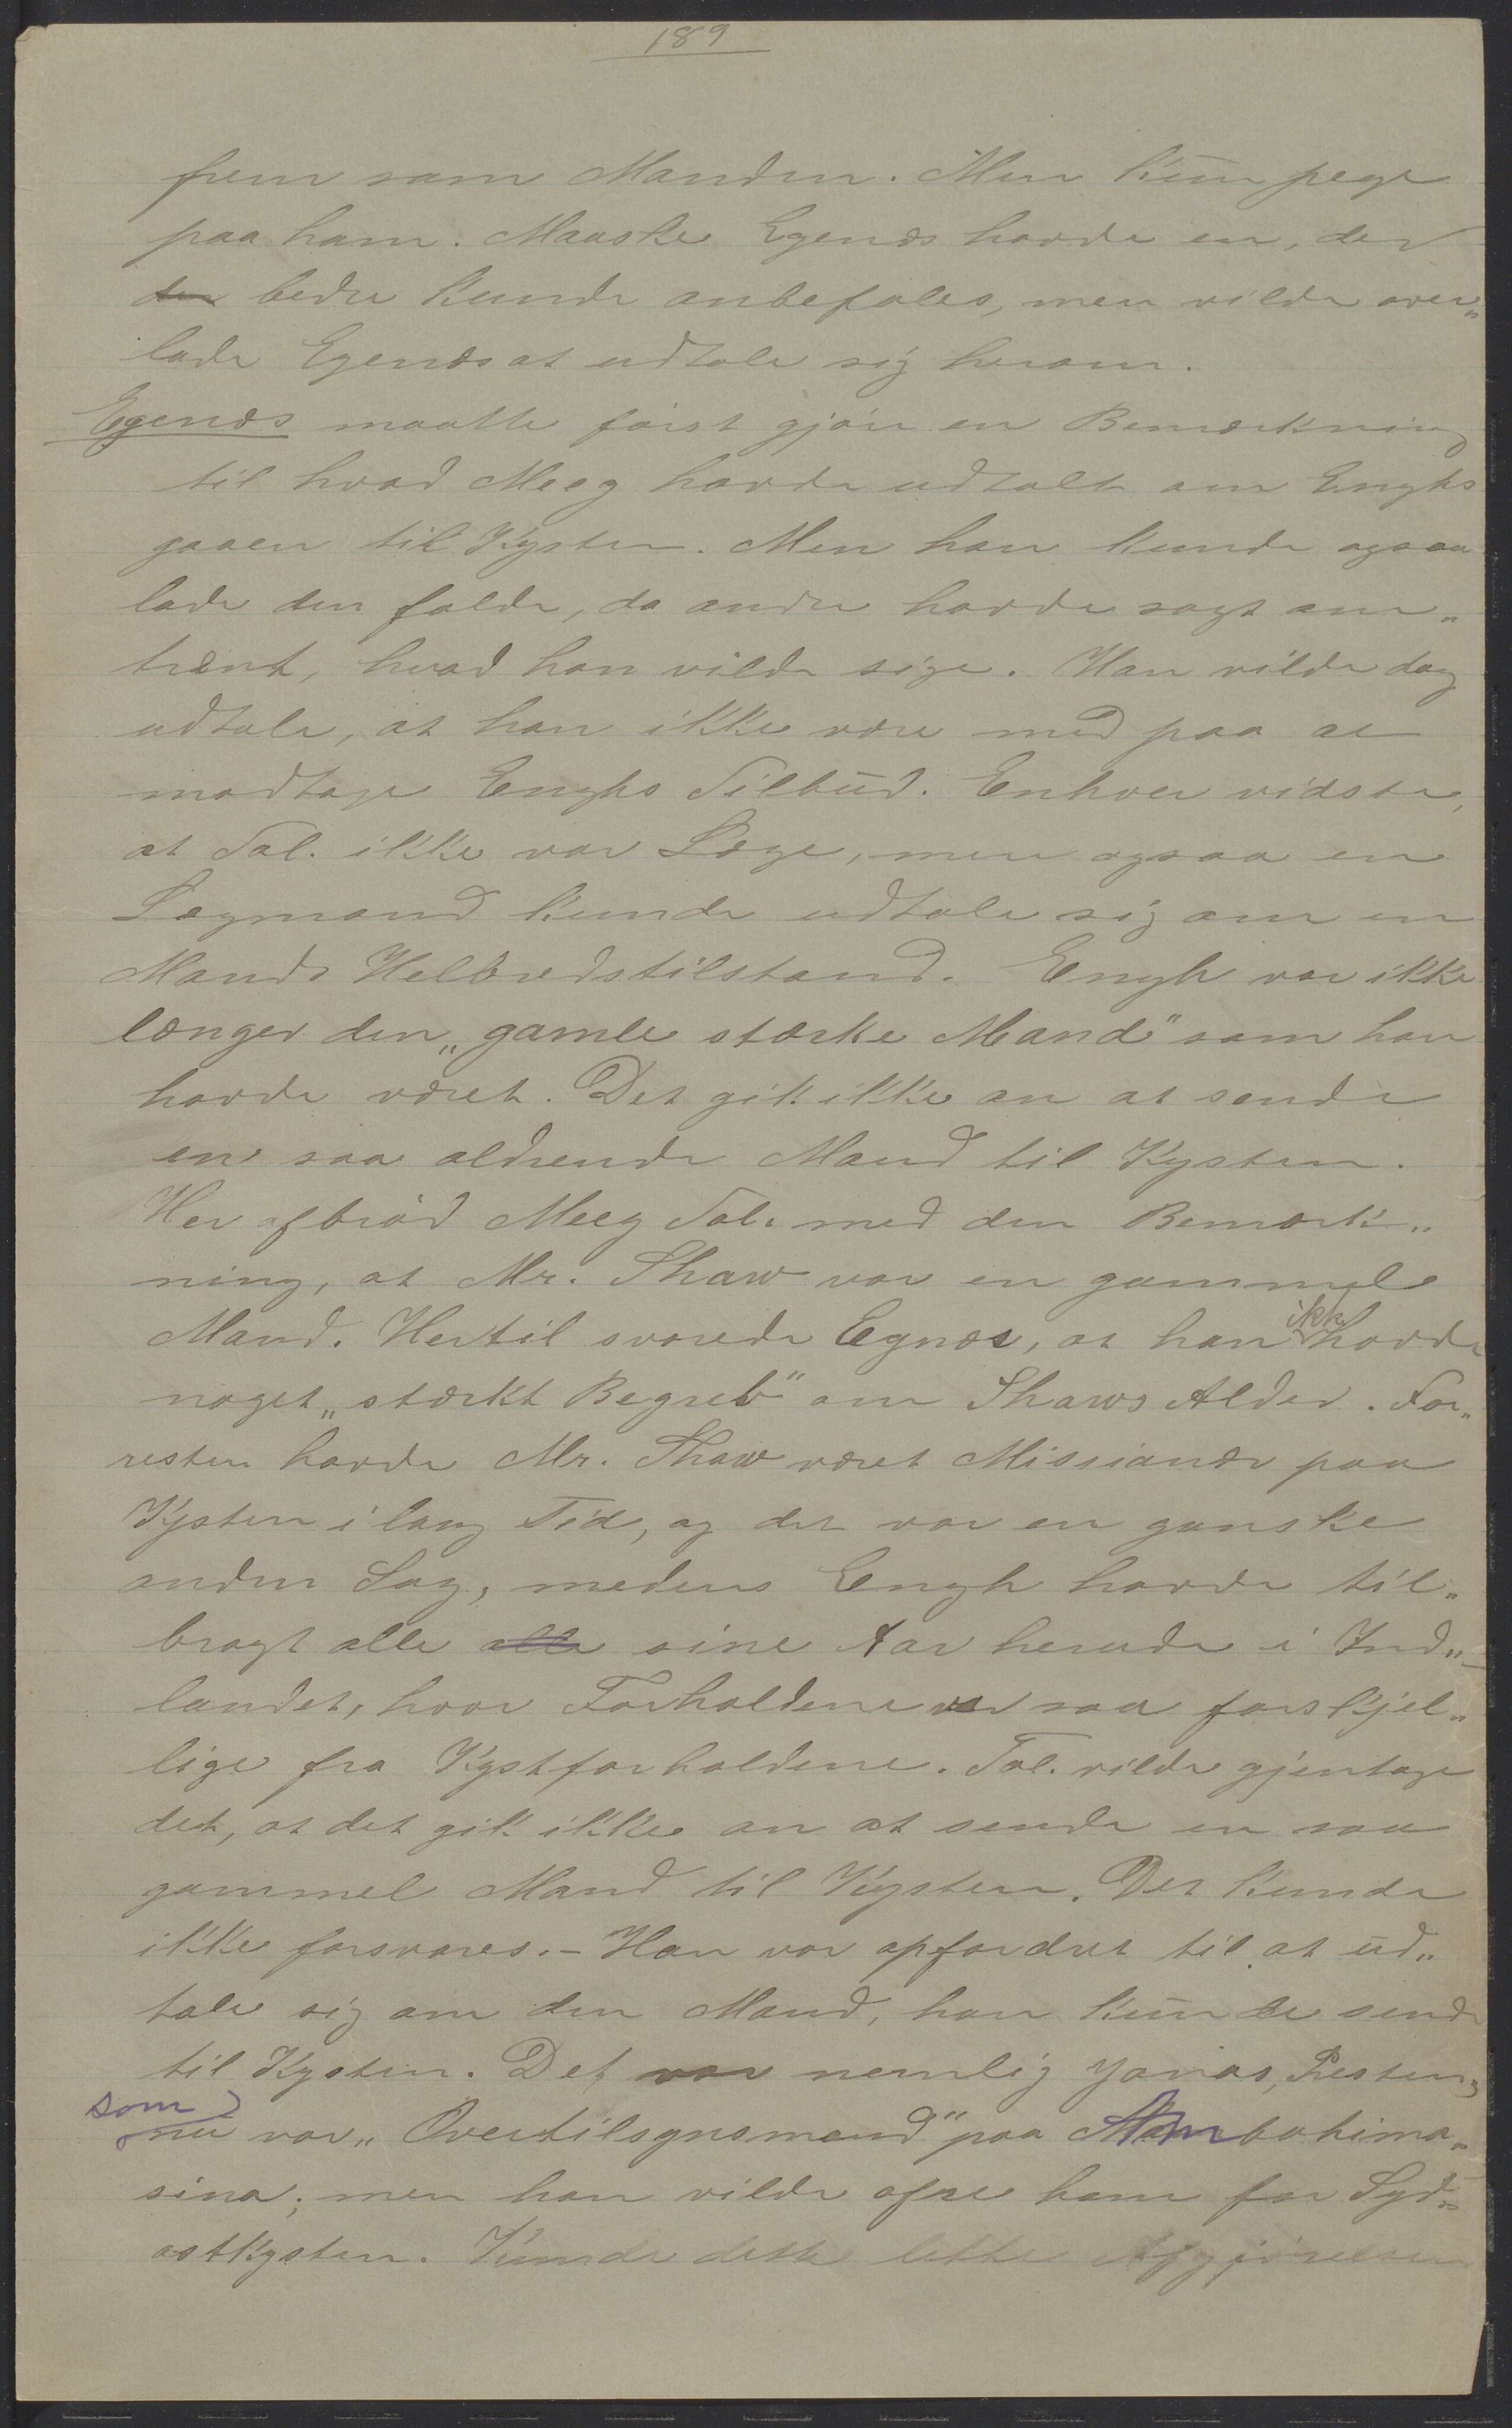 189
frem som Manden. Men kun pege
paa ham. Maaske Egenæs havde en, der
den bedre kunde anbefales, men vilde over„
lade Egenæs at udtale sig herom.
Egenæs maatte først gjøre en Bemærkning
til hvad Meeg havde udtalt om Enghs
gaaen til Kysten. Men han kunde ogsaa
lade den falde, da andre havde sagt om„
trent, hvad han vilde sige. Han vilde dog
udtale, at han ikke være med paa at
modtage Enghs Tilbud. Enhver vidste,
at Tal. ikke var Læge, men ogsaa en
Lægmand kunde udtale sig om en
Mands Helbredstilstand. Engh var ikke
længer den „gamle stærke Mand" som han
havde været. Det gik ikke an at sende
en saa aldrende Mand til Kysten.
Her afbrød Meeg Tal. med den Bemærk„
ning, at Mr. Shaw var en gammel
Mand. Hertil svarede Egnæs, at han ikke havde
noget „stærkt Begreb" om Shaws Alder. For„
resten havde Mr. Shaw været Missionær paa
Kysten i lang Tid, og det var en ganske
anden Sag, medens Engh havde til„
bragt alle alle sine Aar herude i Ind„
landet, hvor Forholdene var saa forskjel„
lige fra Kystforholdene. Tal. vilde gjentage
det, at det gik ikke an at sende en saa
gammel Mand til Kysten. Det kunde
ikke forsvares. – Han var opfordret til at ud„
tale sig om den Mand, han kunde sende
til Kysten. Det var nemlig Jonas, Presten,
som nu var „Overtilsynsmand" paa Ambohima„
sina; men han vilde afse ham for Syd„
ostkysten. Kunde dette lette Afgjørelsen